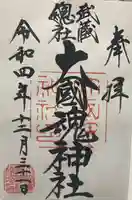 奉拝
武蔵
總社
大國魂神社
令和四年十二月三十一日